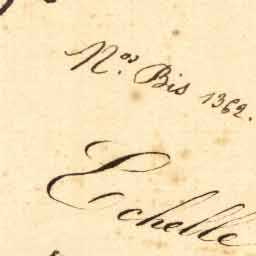 Nos. Bis 1362.
Echelle